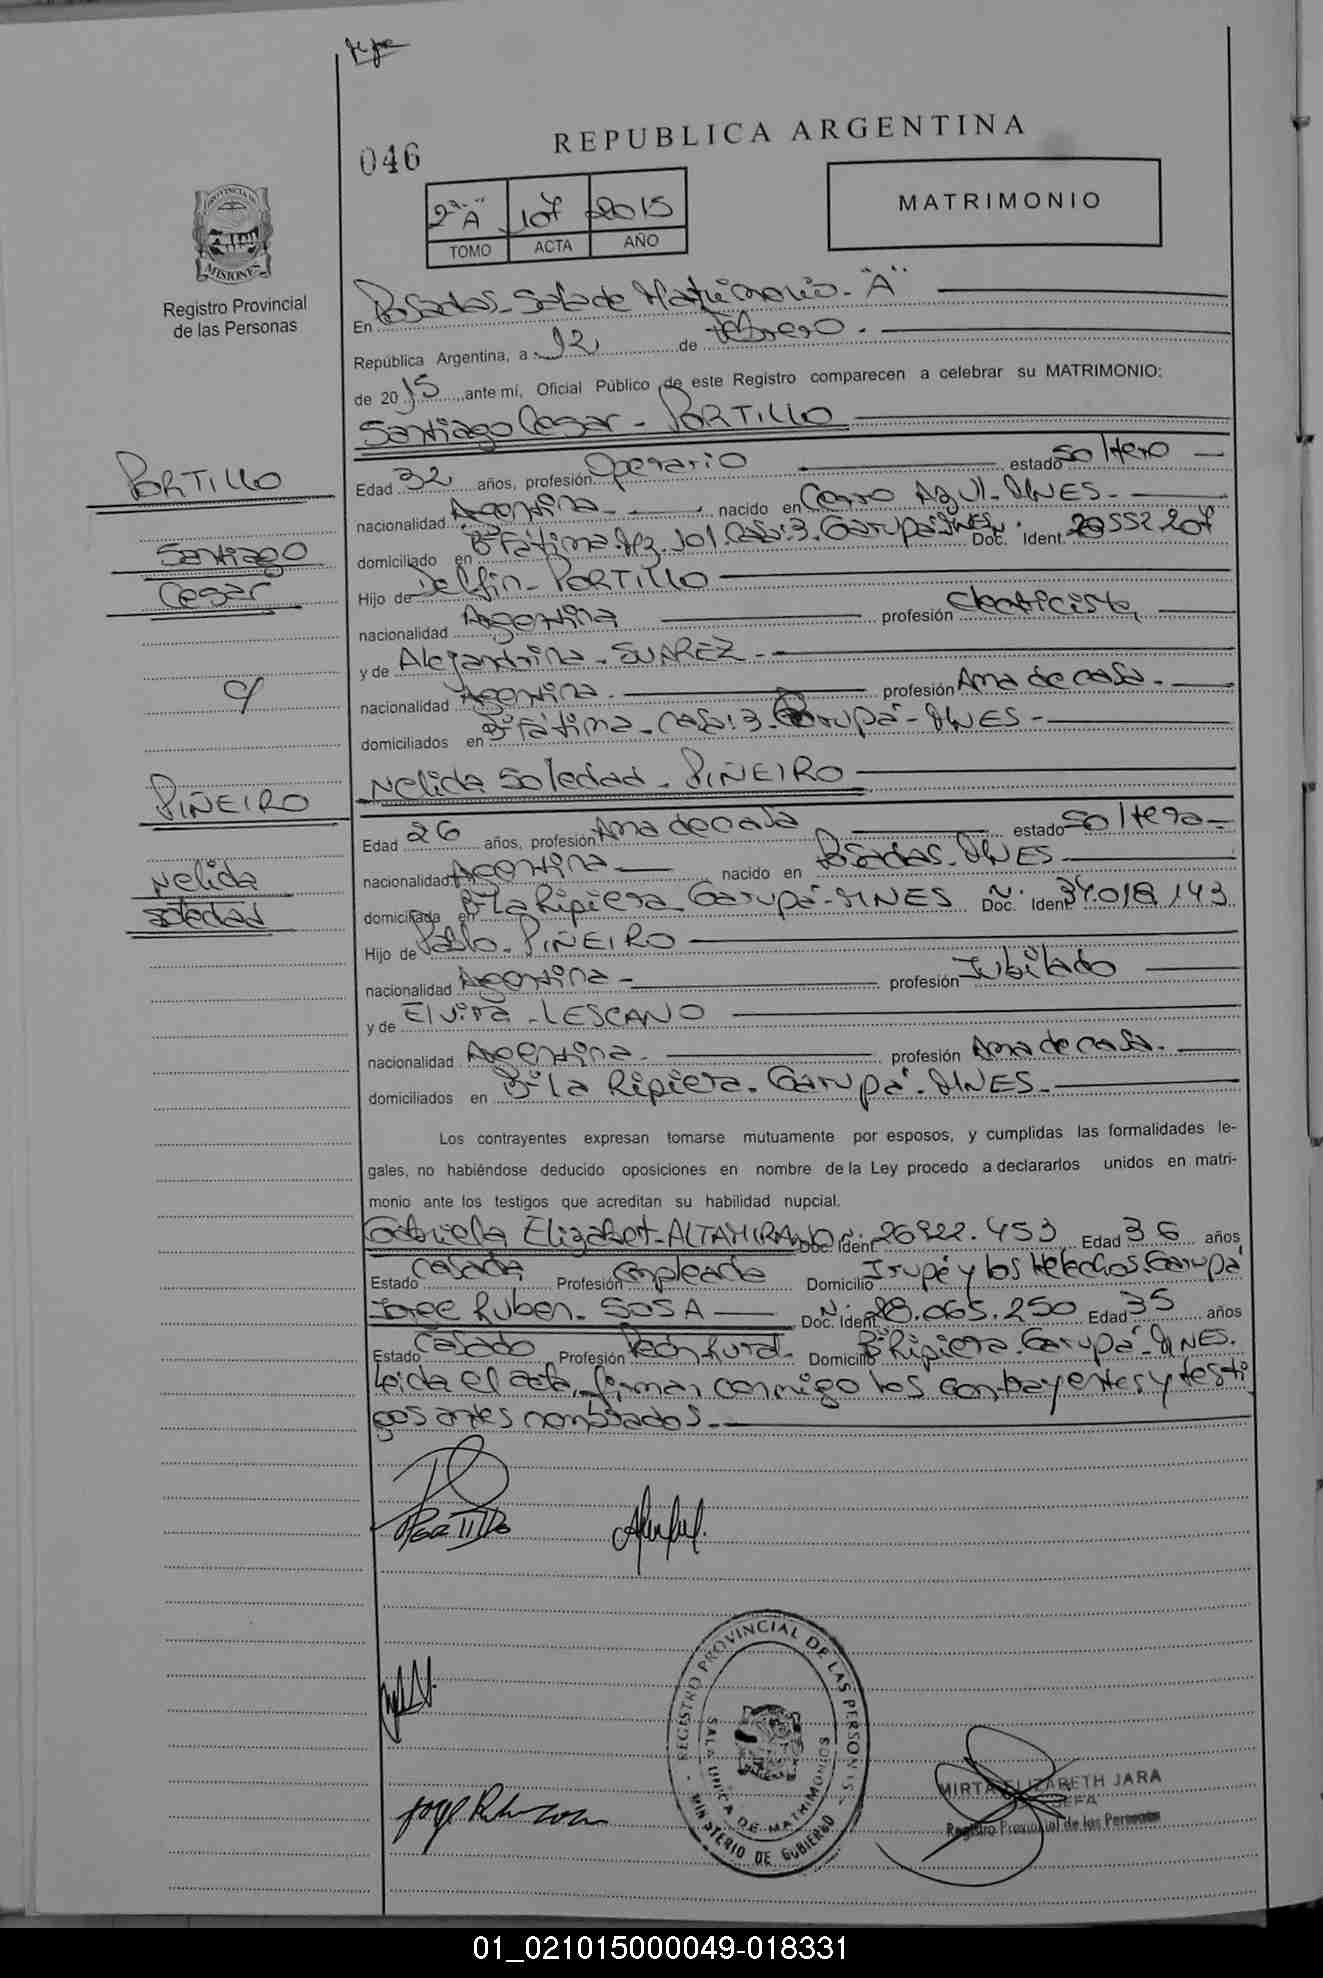 046
REPUBLICA ARGENTINA
2º "A" 107 2015
TOMO ACTA AÑO
MATRIMONIO
PROVINCIA DE MISIONES
Registro Provincial
de las Personas
En Posadas - Sala de Matrimonio - "A"
República Argentina, a 12 de febrero.
de 2015, ante mí, Oficial Público de este Registro comparecen a celebrar su MATRIMONIO:
Santiago Cesar - PORTILLO
PORTILLO
Santiago
Cesar
c/
PIÑEIRO
Nelida
Soledad
Edad 32 años, profesión Operario estado Soltero
nacionalidad Argentina nacido en Cerro Azul - MNES -
domiciliado en Bº Fátima Mz. 101 Casa: 3. Garupá MNES Doc. Ident. 29552.207
Hijo de Delfin - PORTILLO
nacionalidad Argentina profesión electricista
y de Alejandrina - SUAREZ -
nacionalidad Argentina. profesión Ama de casa.
domiciliados en Bº Fátima - casa: 3. Garupá - MNES -
Nelida Soledad - PIÑEIRO
Edad 26 años, profesión Ama de casa estado Soltera
nacionalidad Argentina nacido en Posadas - MNES
domiciliada en Bº La Ripiera - Garupá - MNES Doc. Ident 34.018.143
Hijo de Pablo - PIÑEIRO
nacionalidad Argentina profesión Jubilado
y de Elvira - LESCANO
nacionalidad Argentina. profesión Ama de casa.
domiciliados en Bº La Ripiera - Garupá - MNES -
Los contrayentes expresan tomarse mutuamente por esposos, y cumplidas las formalidades le-
gales, no habiéndose deducido oposiciones en nombre de la Ley procedo a declararlos unidos en matri-
monio ante los testigos que acreditan su habilidad nupcial.
Gabriela Elizabet - ALTAMIRANO Doc. Ident. 26922.453 Edad 36 años
Estado Casada Profesión empleada Domicilio Irupé y los Helechos Garupá
Jorge Ruben - SOSA Doc. Ident. 28.065.250 Edad 35 años
Estado Casado Profesión Peón rural. Domicilio Bº Ripiera - Garupá - MNES.
Leida el acta, firman conmigo los contrayentes y testi
gos antes nombrados.
PORTILLO
REGISTRO PROVINCIAL DE LAS PERSONAS
SALA UNICA DE MATRIMONIOS
MINISTERIO DE GOBIERNO
MIRTA ELIZABETH JARA
JEFA
Registro Provincial de las Personas
01_021015000049-018331